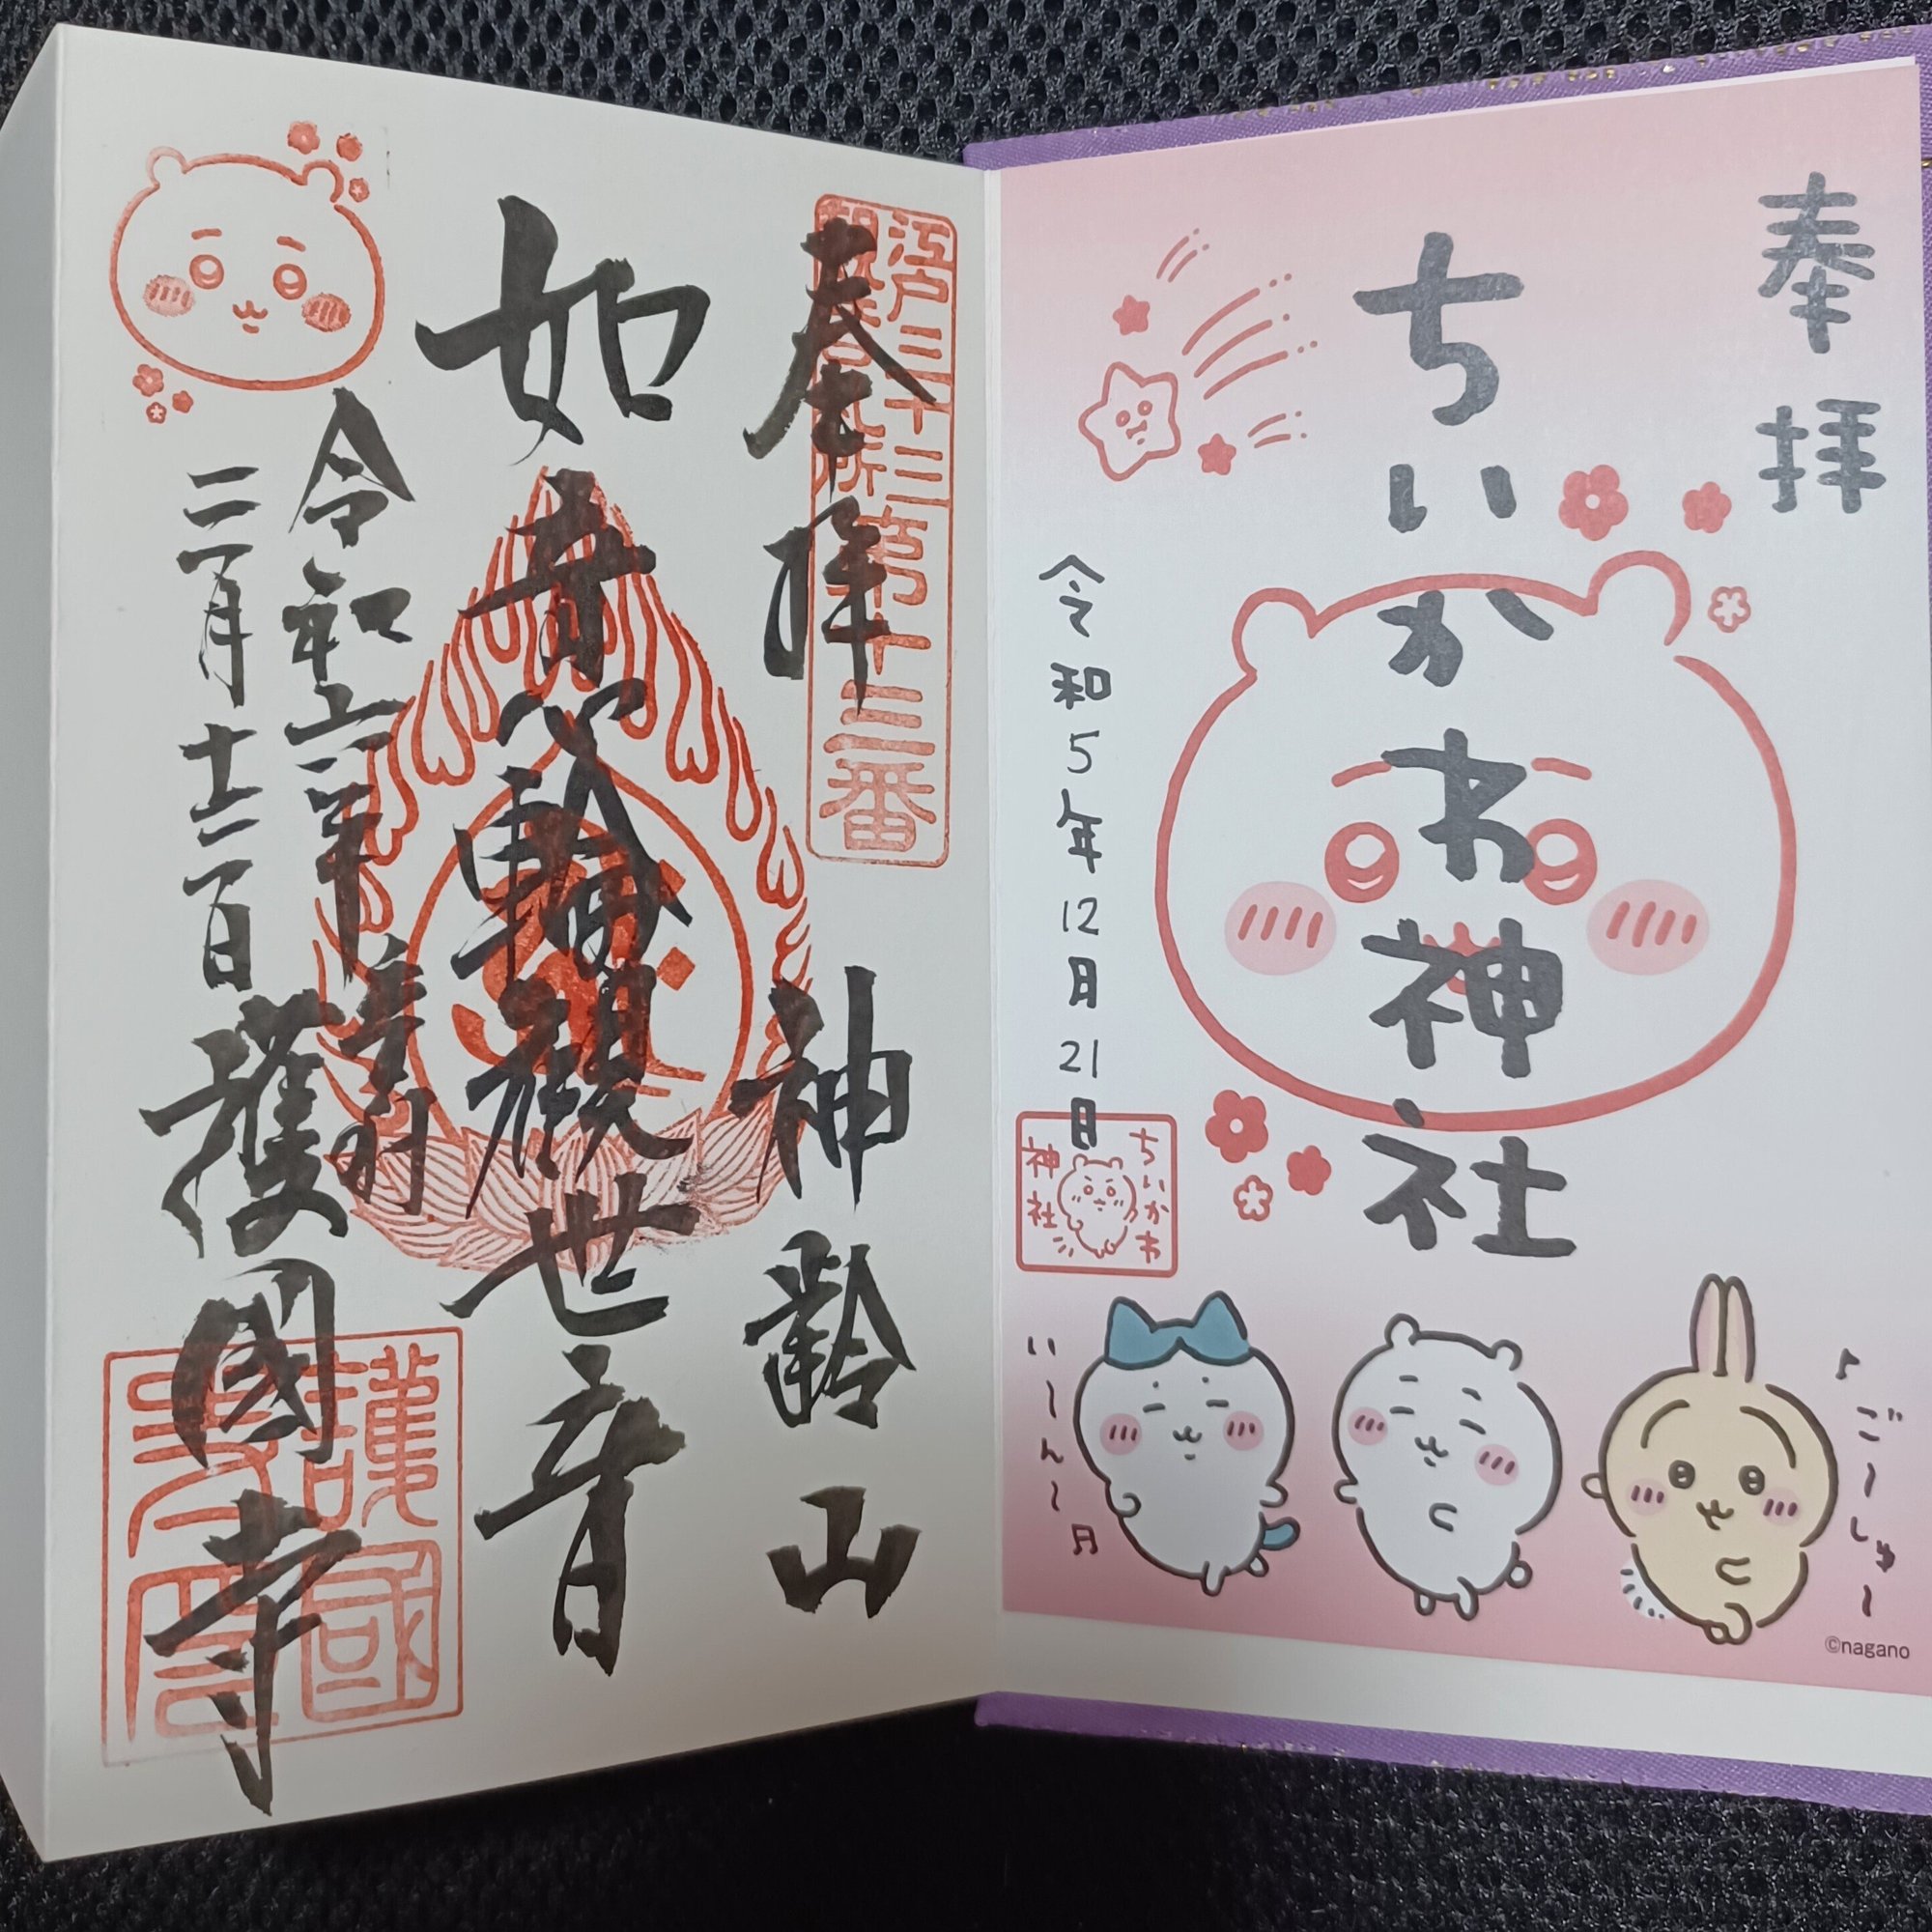 奉拝
ちいかわ神社
令和5年12月21日
ちいかわ
神社
♪ごーしゅ〜
い〜ん〜♪
©nagano
奉拝
神齢山
江戸三十三
観音札所第十三番
如意輪観世音
令和六年
二月十二日
音羽
護國寺
護國